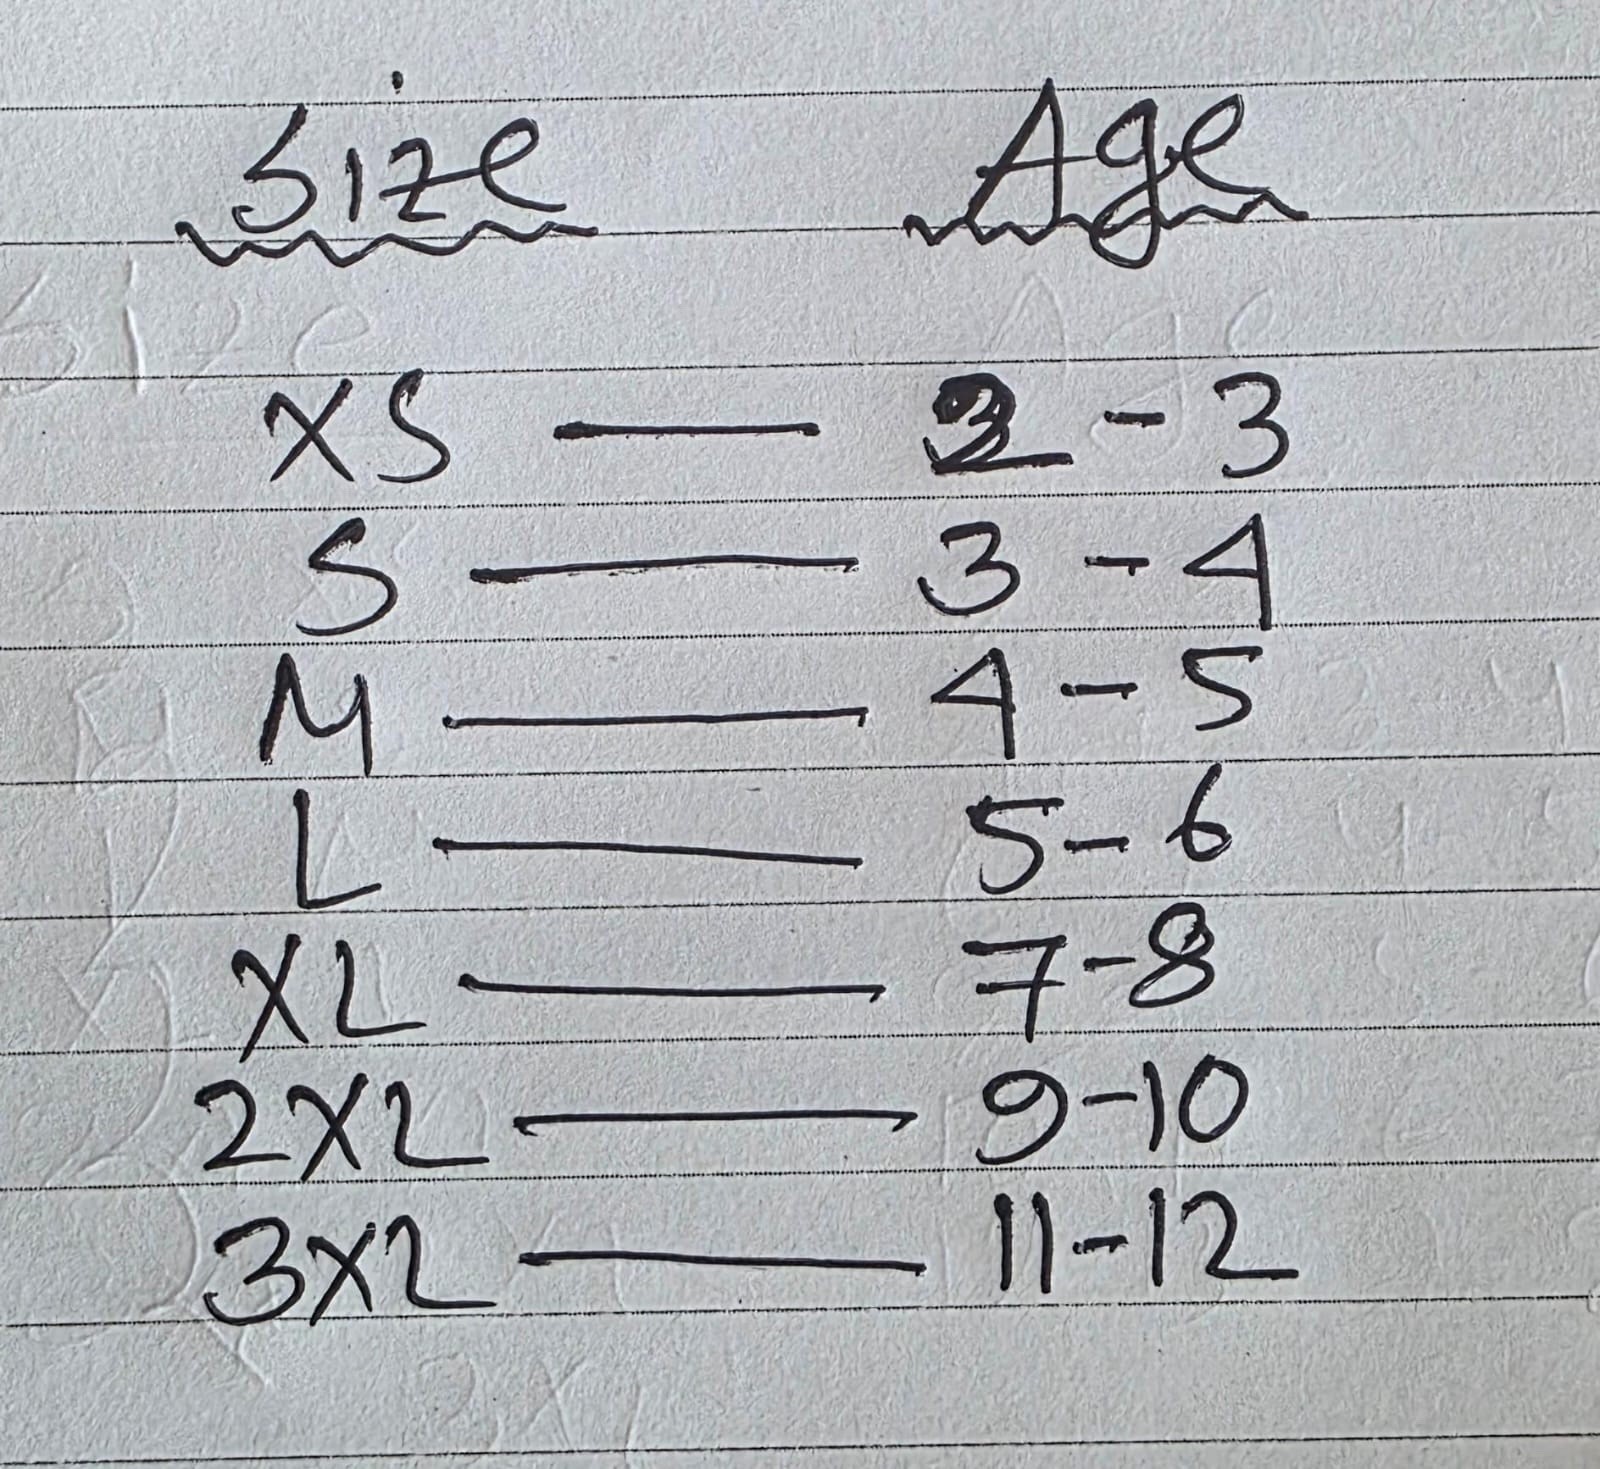 Size Age
XS — 2 - 3
S — 3 - 4
M — 4 - 5
L — 5 - 6
XL — 7 - 8
2XL — 9-10
3XL — 11-12